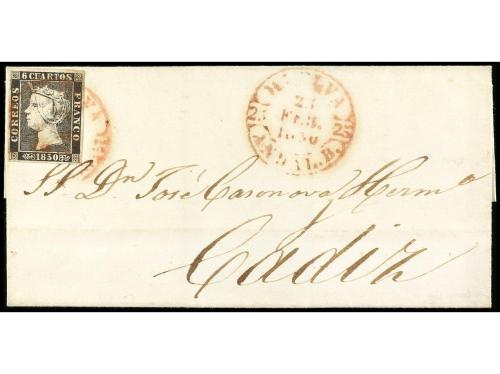 6 CUARTOS
CORREOS
FRANCO
1850
HUELVA
23
FEB.
1850
AND. BAJ.
Sr. Dn. José Casanova Hermo
Cadiz